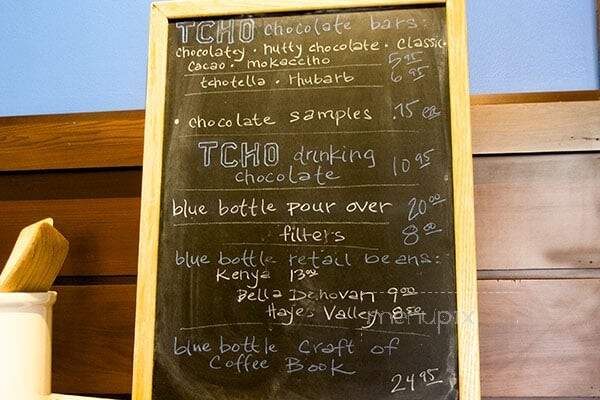 TCHO chocolate bars:
chocolatey · nutty chocolate · classic
cacao · mokaccino 5.95
tchotella · rhubarb 6.95
• chocolate samples .75 ea
TCHO drinking 10.95
chocolate
blue bottle pour over 20.00
filters 8.00
blue bottle retail beans:
Kenya 13.00
Bella Donovan 9.00
Hayes Valley 8.50
menupix
blue bottle Craft of
Coffee Book
24.95